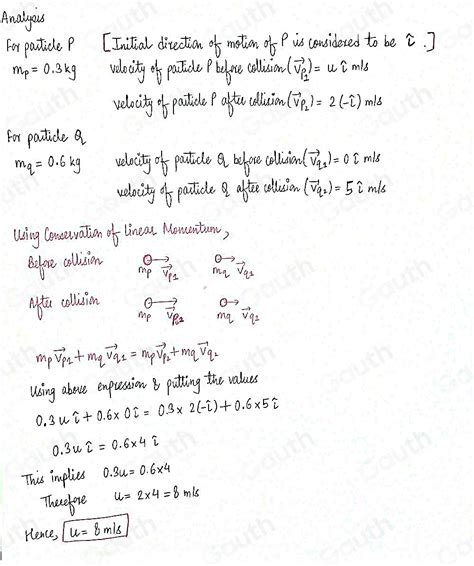 Analysis
For particle P [Initial direction of motion of P is considered to be î.]
mp = 0.3 kg velocity of particle P before collision (v⃗p1) = u î m/s
velocity of particle P after collision (v⃗p2) = 2 (-î) m/s
For particle Q
mq = 0.6 kg velocity of particle Q before collision (v⃗q1) = 0 î m/s
velocity of particle Q after collision (v⃗q2) = 5 î m/s
Using Conservation of Linear Momentum,
Before collision
mp v⃗p1 mq v⃗q1
After collision
mp v⃗p2 mq v⃗q2
mp v⃗p1 + mq v⃗q1 = mp v⃗p2 + mq v⃗q2
Using above expression & putting the values
0.3 u î + 0.6 × 0 î = 0.3 × 2(-î) + 0.6 × 5 î
0.3u î = 0.6×4 î
This implies 0.3u = 0.6×4
Therefore u = 2×4 = 8 m/s
Hence, u = 8 m/s
Gauth